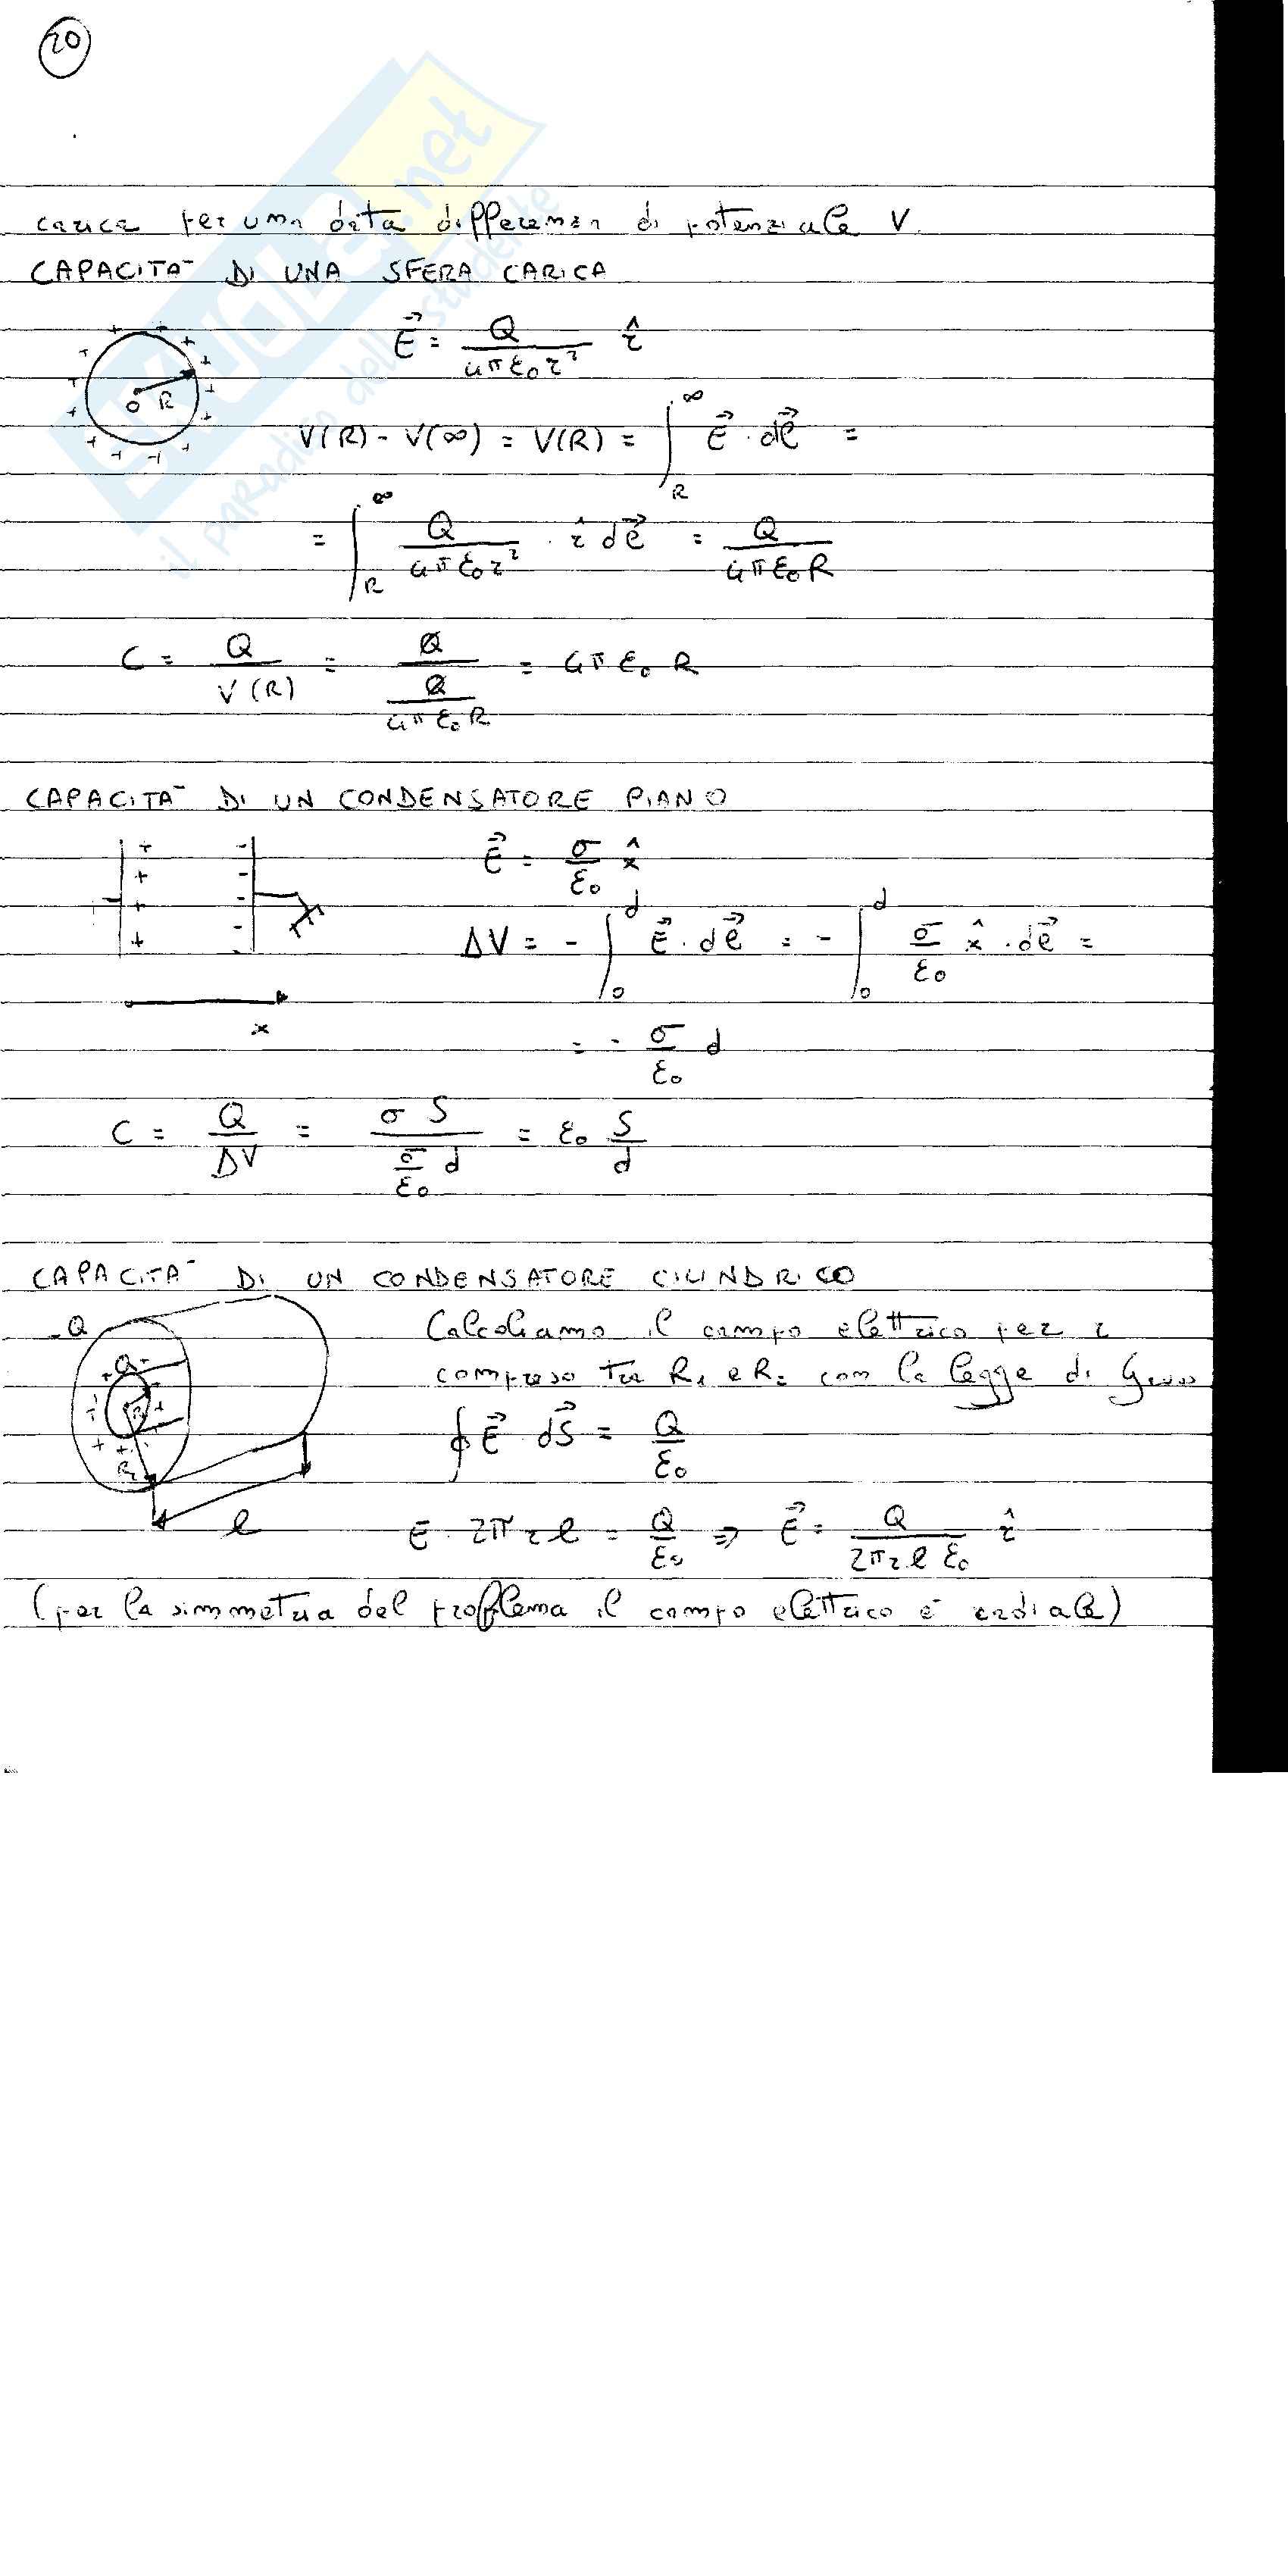 20
carica per una data differenza di potenziale V.
CAPACITA' DI UNA SFERA CARICA
E⃗ = Q / (4πε₀r²) r̂
O R
V(R) - V(∞) = V(R) = ∫_R^∞ E⃗ · dℓ⃗ =
= ∫_R^∞ Q / (4πε₀r²) · r̂ dℓ⃗ = Q / (4πε₀R)
C = Q / V(R) = Q / (Q / (4πε₀R)) = 4πε₀R
CAPACITA' DI UN CONDENSATORE PIANO
E⃗ = σ/ε₀ x̂
ΔV = - ∫_0^d E⃗ · dℓ⃗ = - ∫_0^d σ/ε₀ x̂ · dℓ⃗ =
x
= - σ/ε₀ d
C = Q / ΔV = σS / (σ/ε₀ d) = ε₀ S/d
CAPACITA' DI UN CONDENSATORE CILINDRICO
-Q
Calcoliamo il campo elettrico per r
compreso tra R₁ e R₂ con la legge di Gauss
Q
R₁
R₂
∮ E⃗ dS⃗ = Q/ε₀
ℓ
E · 2πrℓ = Q/ε₀ ⇒ E⃗ = Q / (2πrℓε₀) r̂
(per la simmetria del problema il campo elettrico è radiale)
SKUOLA.net
il paradiso dello studente